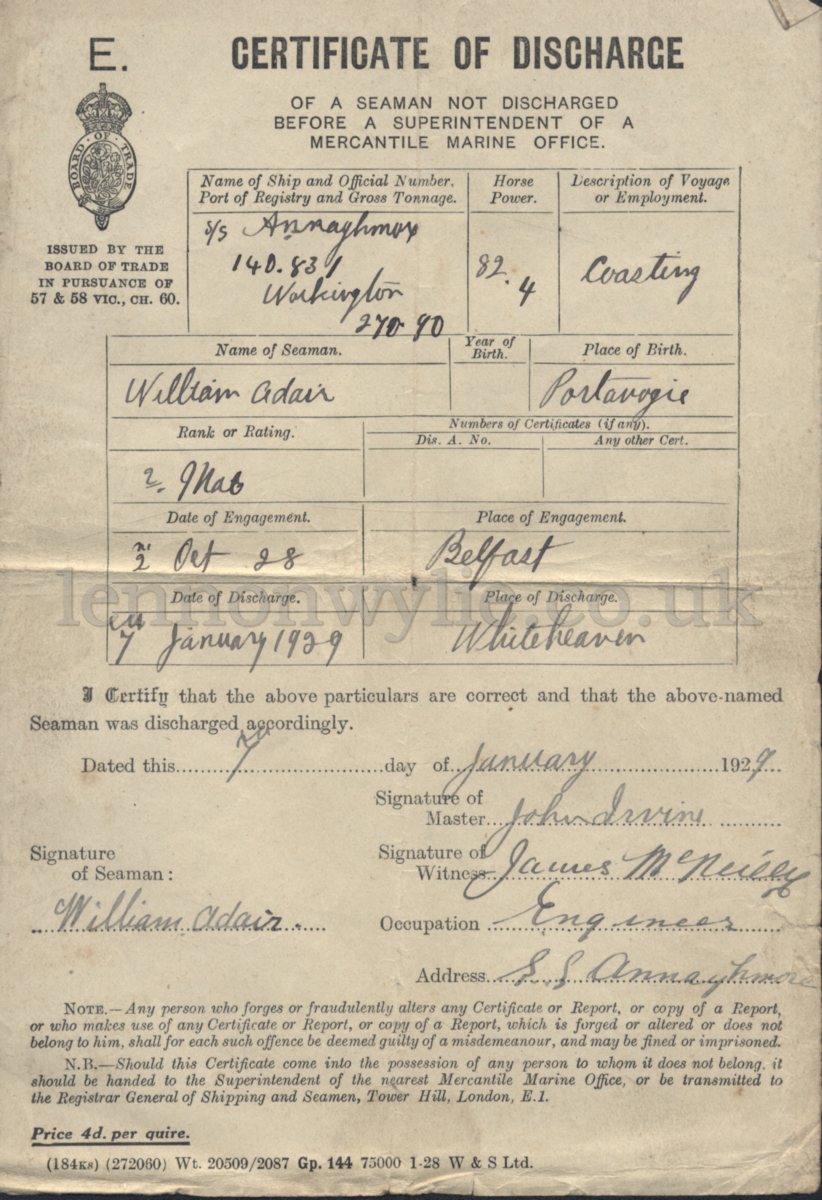 E.
CERTIFICATE OF DISCHARGE
OF A SEAMAN NOT DISCHARGED
BEFORE A SUPERINTENDENT OF A
MERCANTILE MARINE OFFICE.
BOARD OF TRADE
ISSUED BY THE
BOARD OF TRADE
IN PURSUANCE OF
57 & 58 VIC., CH. 60.
Name of Ship and Official Number,
Port of Registry and Gross Tonnage.
Horse
Power.
Description of Voyage
or Employment.
s/s Annaghmore
140.831
Workington
270.90
82.4
Coasting
Name of Seaman.
Year of
Birth.
Place of Birth.
William Adair
Portavogie
Rank or Rating.
Numbers of Certificates (if any).
Dis. A. No.
Any other Cert.
2.
Date of Engagement.
Place of Engagement.
2 Oct 28
Belfast
lennonwylie.co.uk
Date of Discharge.
Place of Discharge.
7 January 1929
Whiteheaven
I Certify that the above particulars are correct and that the above-named
Seaman was discharged accordingly.
Dated this 7 day of January 1929.
Signature of
Master John Irvine
Signature
of Seaman:
William Adair.
Signature of
Witness James McNeilly
Occupation Engineer
Address S S Annaghmore
NOTE.—Any person who forges or fraudulently alters any Certificate or Report, or copy of a Report,
or who makes use of any Certificate or Report, or copy of a Report, which is forged or altered or does not
belong to him, shall for each such offence be deemed guilty of a misdemeanour, and may be fined or imprisoned.
N.B.—Should this Certificate come into the possession of any person to whom it does not belong, it
should be handed to the Superintendent of the nearest Mercantile Marine Office, or be transmitted to
the Registrar General of Shipping and Seamen, Tower Hill, London, E.1.
Price 4d. per quire.
(184KS) (272060) Wt. 20509/2087 Gp. 144 75000 1-28 W & S Ltd.